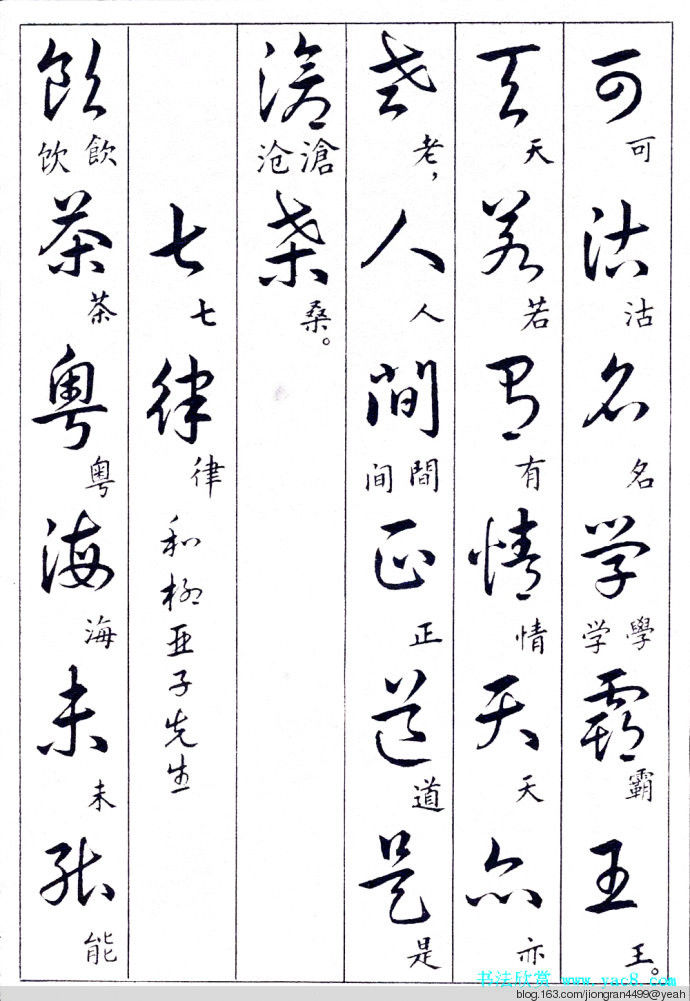 可沽名学霸王
可 沽 名 學 学 霸 王。
天若有情天亦
天 若 有 情 天 亦
老人间正道是
老， 人 間 间 正 道 是
滄桑
滄 沧 桑。
七律 和柳亚子先生
七 律
飲茶粤海未能
飲 饮 茶 粤 海 未 能
书法欣赏 www.yac8.com
blog.163.com/jiongran4499@yeah